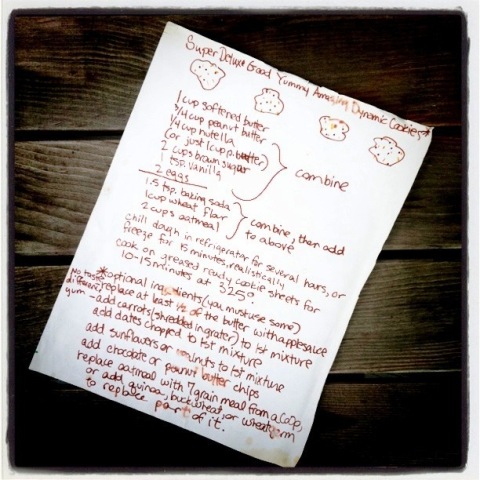 Super Deluxe Good Yummy Amazing Dynamic Cookies*
1 cup softened butter
3/4 cup peanut butter
1/4 cup nutella
(or just 1 cup p. butter)
2 cups brown sugar
1 tsp. vanilla
2 eggs
combine
1.5 tsp. baking soda
1 cup wheat flour
2 cups oatmeal
combine, then add
to above
chill dough in refrigerator for several hours, or
freeze for 15 minutes, realistically
cook on greased ready cookie sheets for
10-15 minutes at 325°
*optional ingredients (you must use some)
No taste
difference,
yum
replace at least 1/2 of the butter with applesauce
- add carrots (shredded in grater) to 1st mixture
add dates chopped to 1st mixture
add sunflowers or to 1st mixture
add chocolate or peanut butter chips
replace oatmeal with 7 grain meal from a Co Op,
or add quinoa, buckwheat, or wheatgerm
to replace part of it.